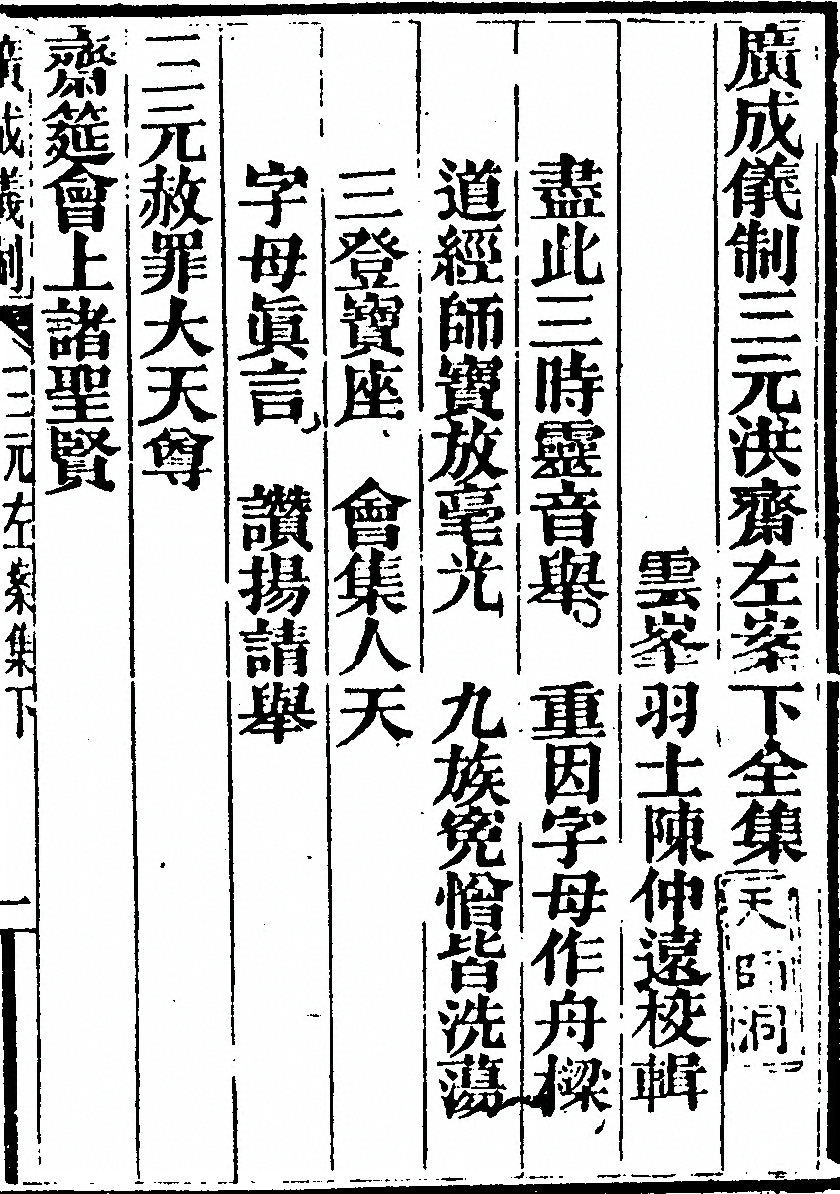 廣成儀制三元洪齋左案下全集
天師洞
雲峯羽士陳仲遠校輯
盡此三時靈音舉　重因字母作舟樑
道經師寶放毫光　九族寃憎皆洗蕩
三登寶座　會集人天
字母眞言　讚揚請舉
三元赦罪大天尊
齋筵會上諸聖賢
廣成儀制　三元左案集下　一